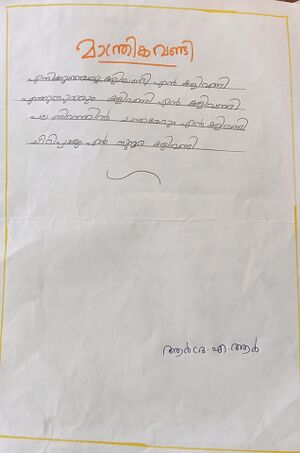 മാന്ത്രിക വണ്ടി
എനിക്കുണ്ടൊരു കളിവണ്ടി എൻ കളിവണ്ടി
എന്തുസുന്ദരം കളിവണ്ടി എൻ കളിവണ്ടി
പല നിറത്തിൽ എൻ കളിവണ്ടി
എൻ സുന്ദര കളിവണ്ടി
ആർദ്ര. എ. ആർ